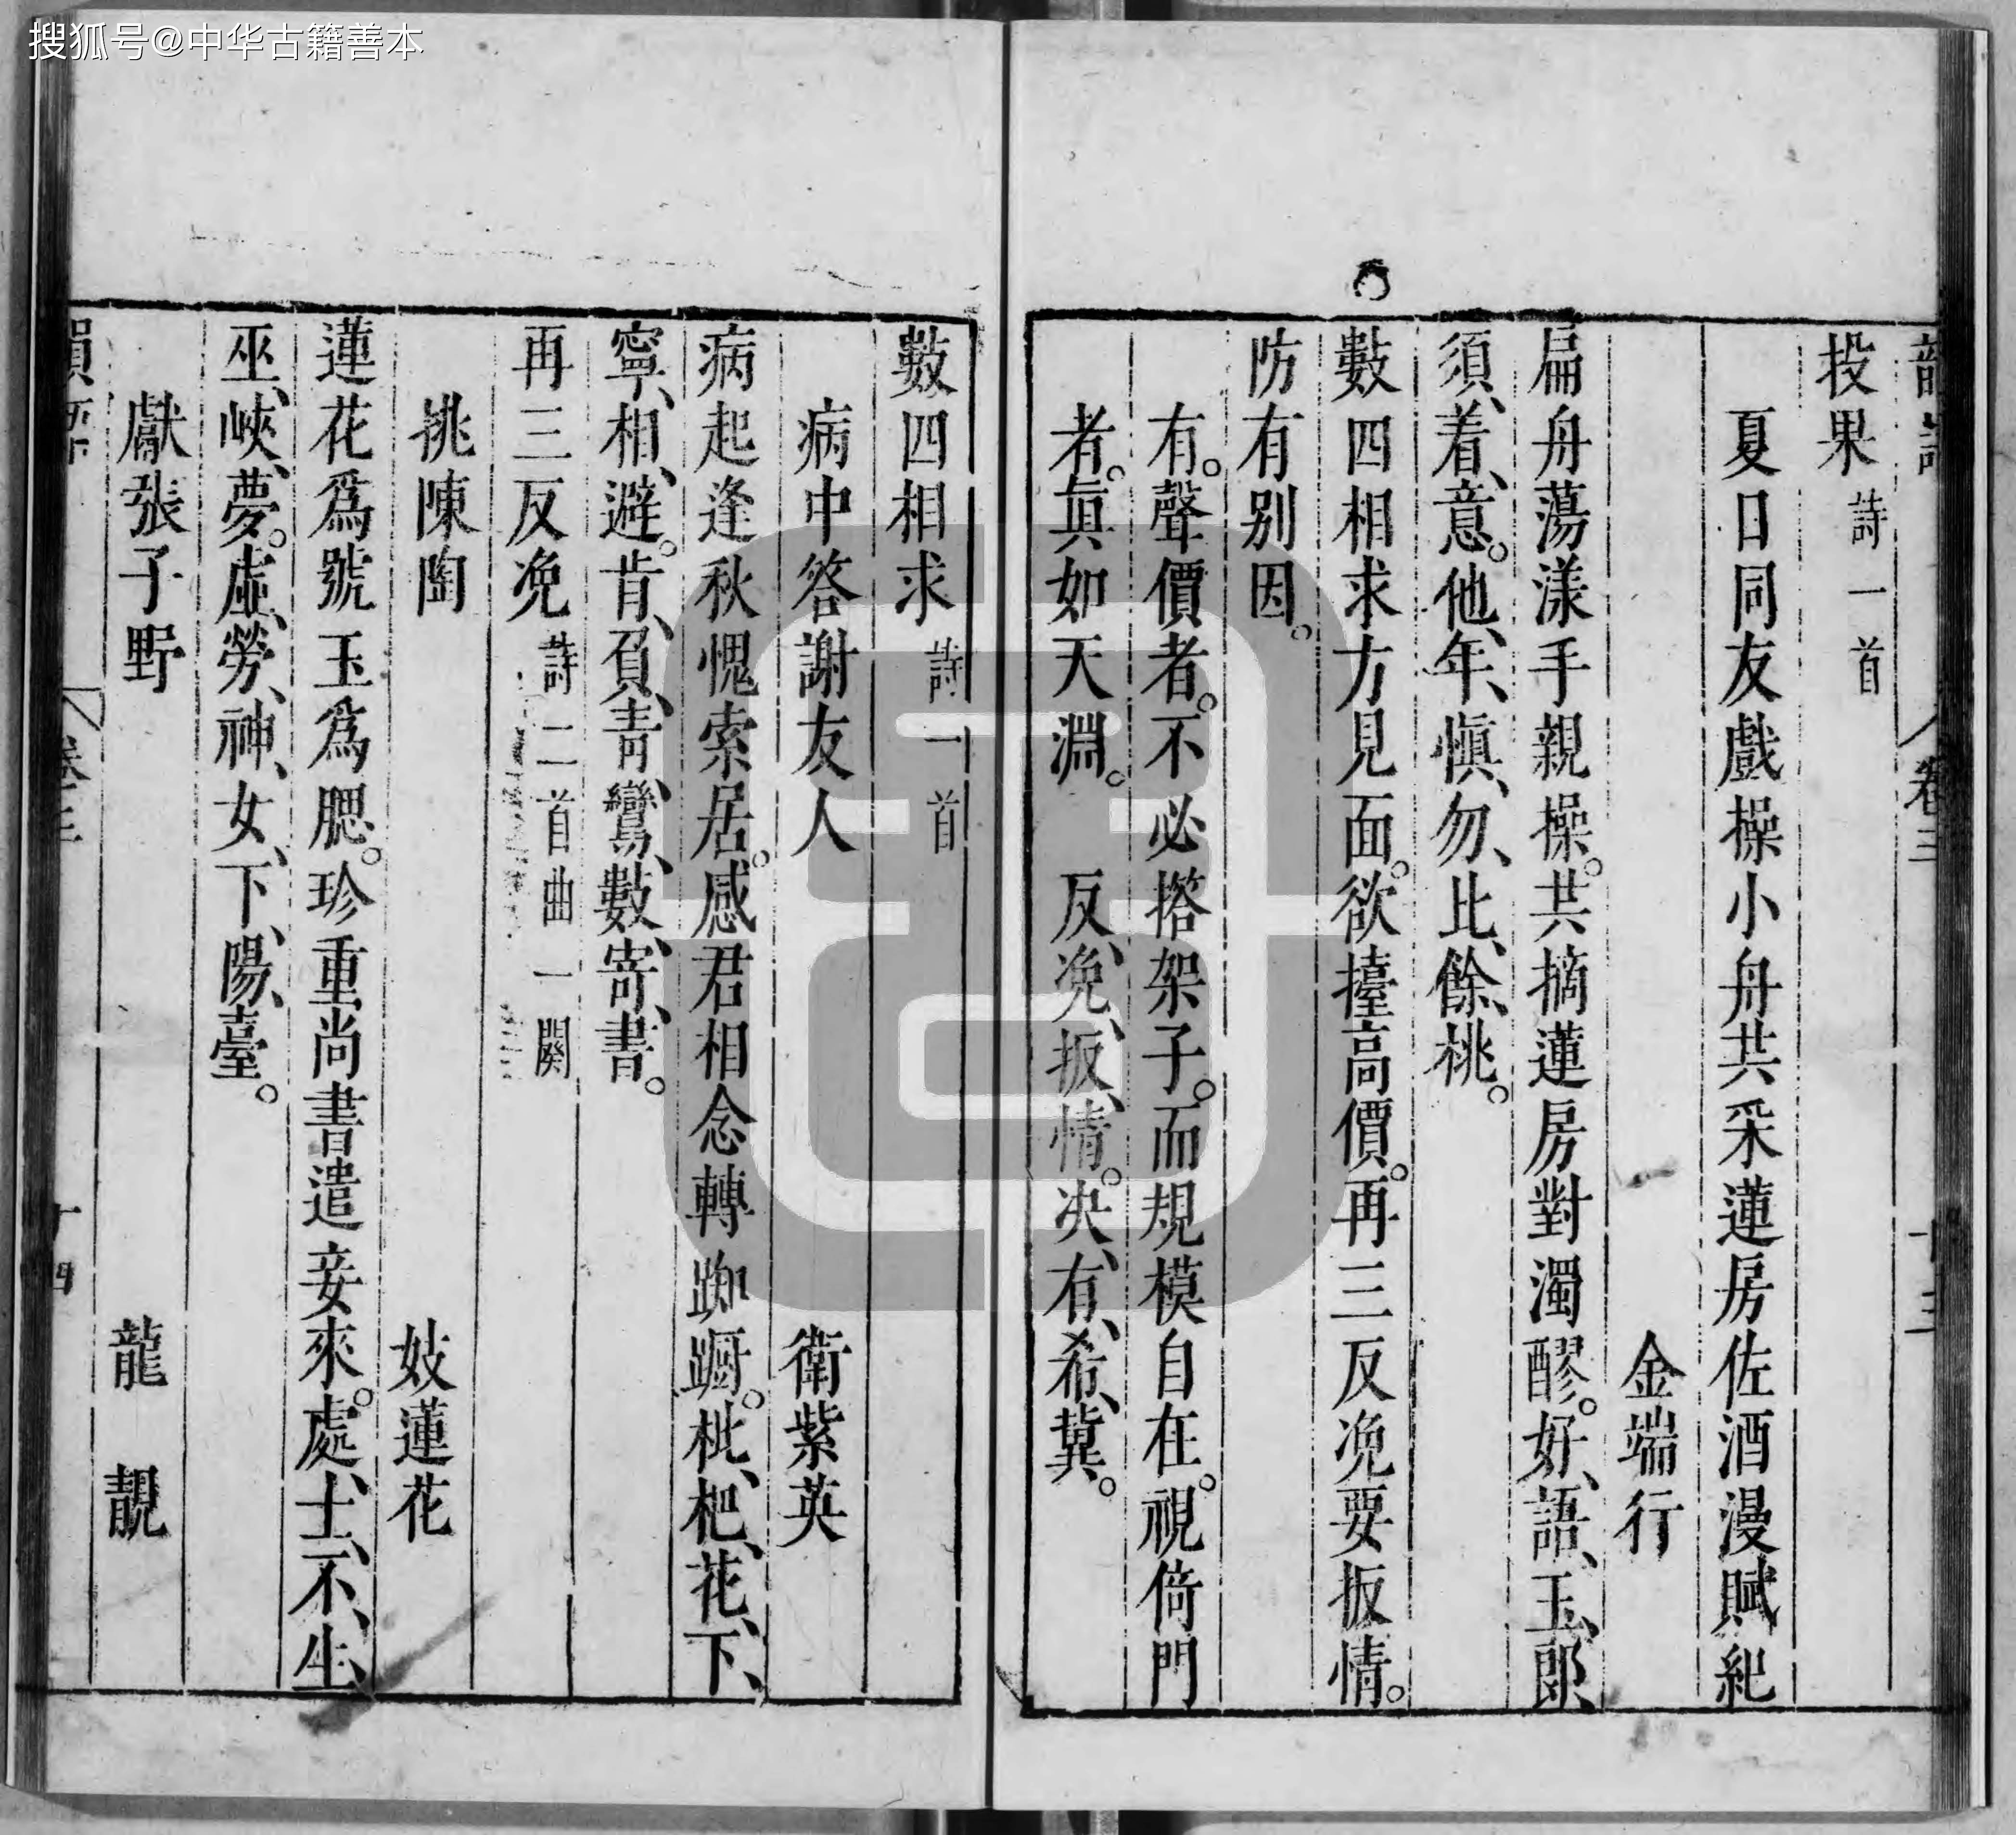 搜狐号@中华古籍善本
卷三
投果 詩一首
夏日同友戲操小舟共采蓮房佐酒漫賦紀
金端行
扁舟蕩漾手親操。共摘蓮房對濁醪。好、語、玉、郎、
須、着、意。他、年、愼、勿、比、餘、桃。
數四相求方見面。欲擡高價。再三反浼要扳情。
防有别因。
有。聲價者。不必搭架子。而規模自在。視倚門
者。眞如天淵。 反、浼、扳、情。决、有、希、冀。
數四相求 詩一首
病中答謝友人
衛紫英
病起逢秋愧索居。感君相念轉踟蹰。枇、杷、花、下、
寧、相、避。肯、負、靑、鸞、數、寄、書。
再三反浼 詩二首曲一闋
挑陳陶
妓蓮花
蓮花爲號玉爲腮。珍重尚書遣妾來。處、士、不、生、
巫、峽、夢。虛、勞、神、女、下、陽、臺。
獻張子野
龍靚
卷三
十四